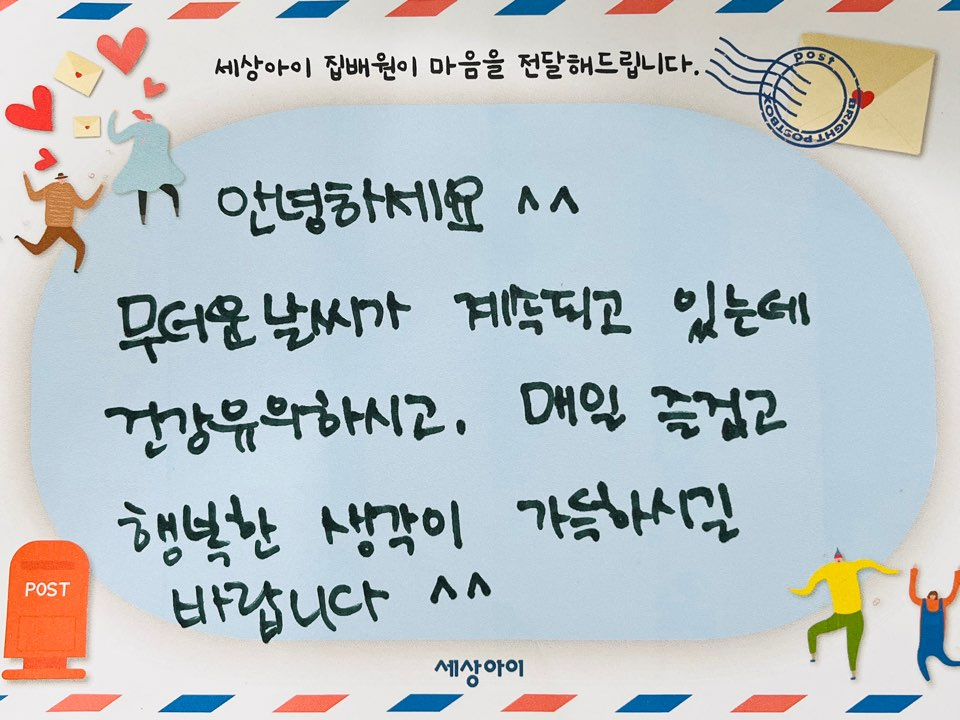 세상아이 집배원이 마음을 전달해드립니다.
post
BRIGHT POSTBOX
안녕하세요 ^^
무더운 날씨가 계속되고 있는데
건강유의하시고. 매일 즐겁고
행복한 생각이 가득하시길
바랍니다 ^^
POST
세상아이